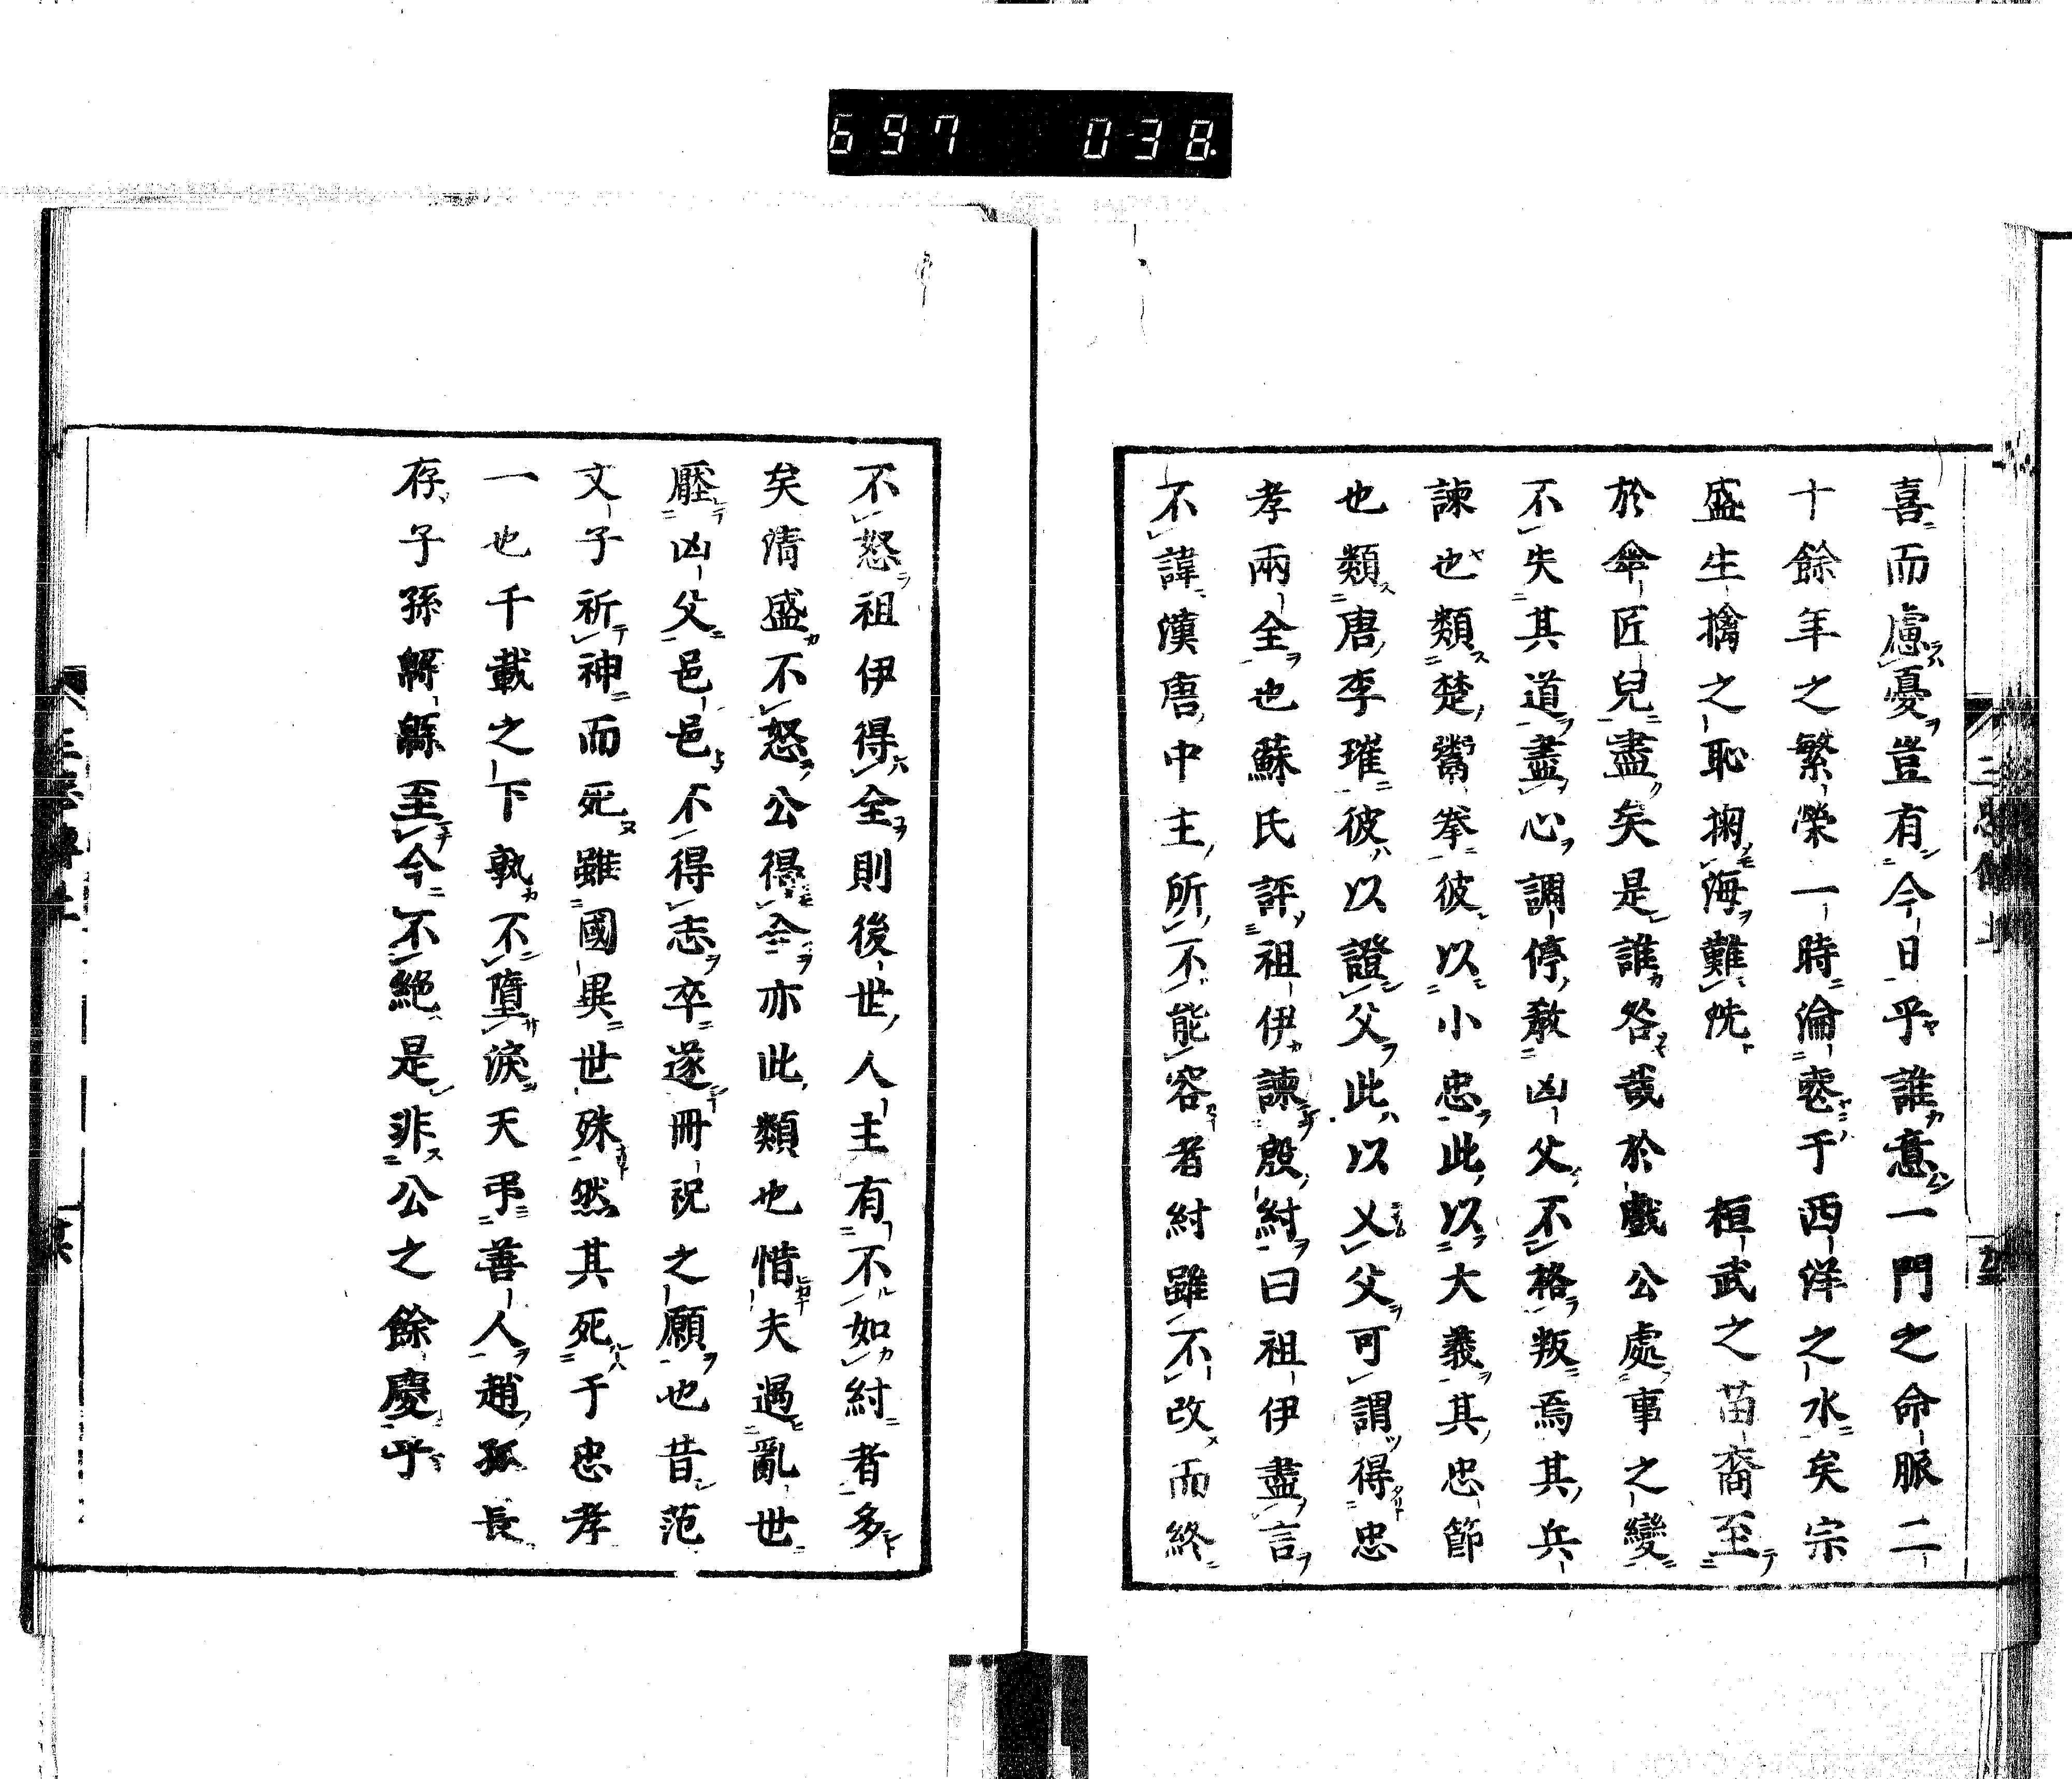 697 038
喜而慮憂豈有今日乎誰意一門之命脈二
十餘年之繁榮一時淪惑于西洋之水矣宗
盛生擒之恥掬海難洗 桓武之苗裔至
於傘匠兒盡矣是誰咎哉於戲公處事之變
不失其道盡心調停教凶父不格叛焉其兵
諫也類楚鬻拳彼以小忠此以大義其忠節
也類唐李璀彼以證父此以乂父可謂得忠
孝兩全也蘇氏評祖伊諫殷紂曰祖伊盡言
不諱漢唐中主所不能容者紂雖不改而終
不怒祖伊得全則後世人主有不如紂者多
矣清盛不怒公得全亦此類也惜夫遇亂世
壓凶父邑邑不得志卒遂冊祝之願也昔范
文子祈神而死雖國異世殊然其死于忠孝
一也千載之下孰不墮淚天弔善人趙孤長
存子孫緜緜至今不絕是非公之餘慶乎